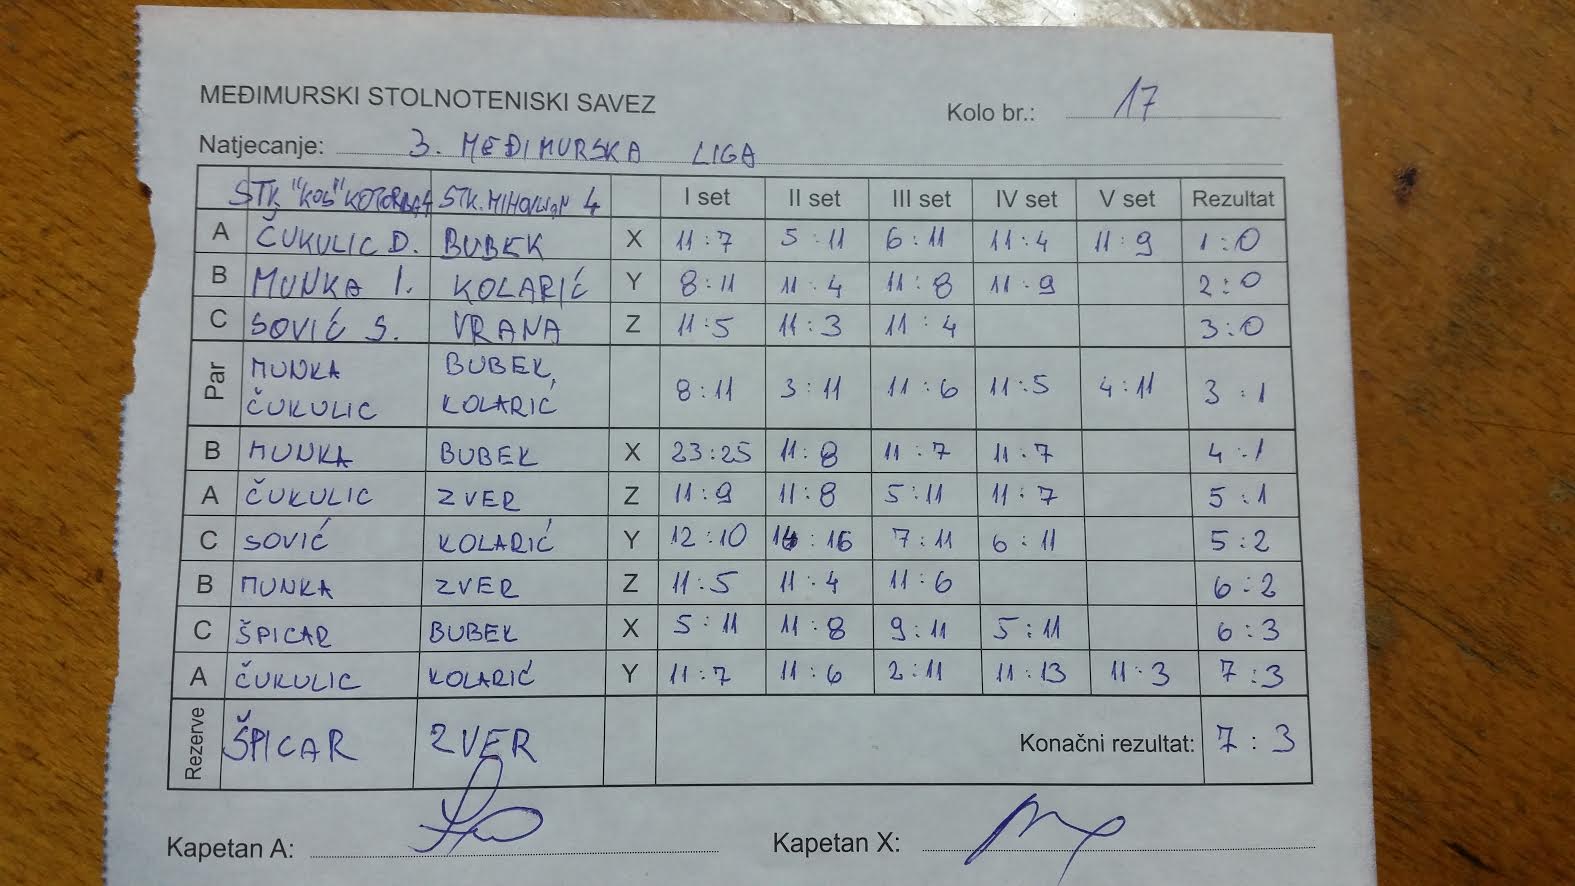 MEĐIMURSKI STOLNOTENISKI SAVEZ Kolo br.: 17
Natjecanje: 3. MEĐIMURSKA LIGA
STK "KOS" STK. 4 I set II set III set IV set V set Rezultat
A ČUKULIC D. BUBEK X 11:7 5:11 6:11 11:4 11:9 1:0
B MUNKA I. KOLARIĆ Y 8:11 11:4 11:8 11:9 2:0
C SOVIĆ S. VRANA Z 11:5 11:3 11:4 3:0
Par MUNKA ČUKULIC BUBEK, KOLARIC 8:11 3:11 11:6 11:5 4:11 3:1
B MUNKA BUBEK X 23:25 11:8 11:7 11:7 4:1
A ČUKULIC ZVER Z 11:9 11:8 5:11 11:7 5:1
C SOVIĆ KOLARIĆ Y 12:10 14:16 7:11 6:11 5:2
B MUNKA ZVER Z 11:5 11:4 11:6 6:2
C ŠPICAR BUBEK X 5:11 11:8 9:11 5:11 6:3
A ČUKULIC KOLARIĆ Y 11:7 11:6 2:11 11:13 11:3 7:3
Rezerve ŠPICAR ZVER Konačni rezultat: 7:3
Kapetan A: Kapetan X: